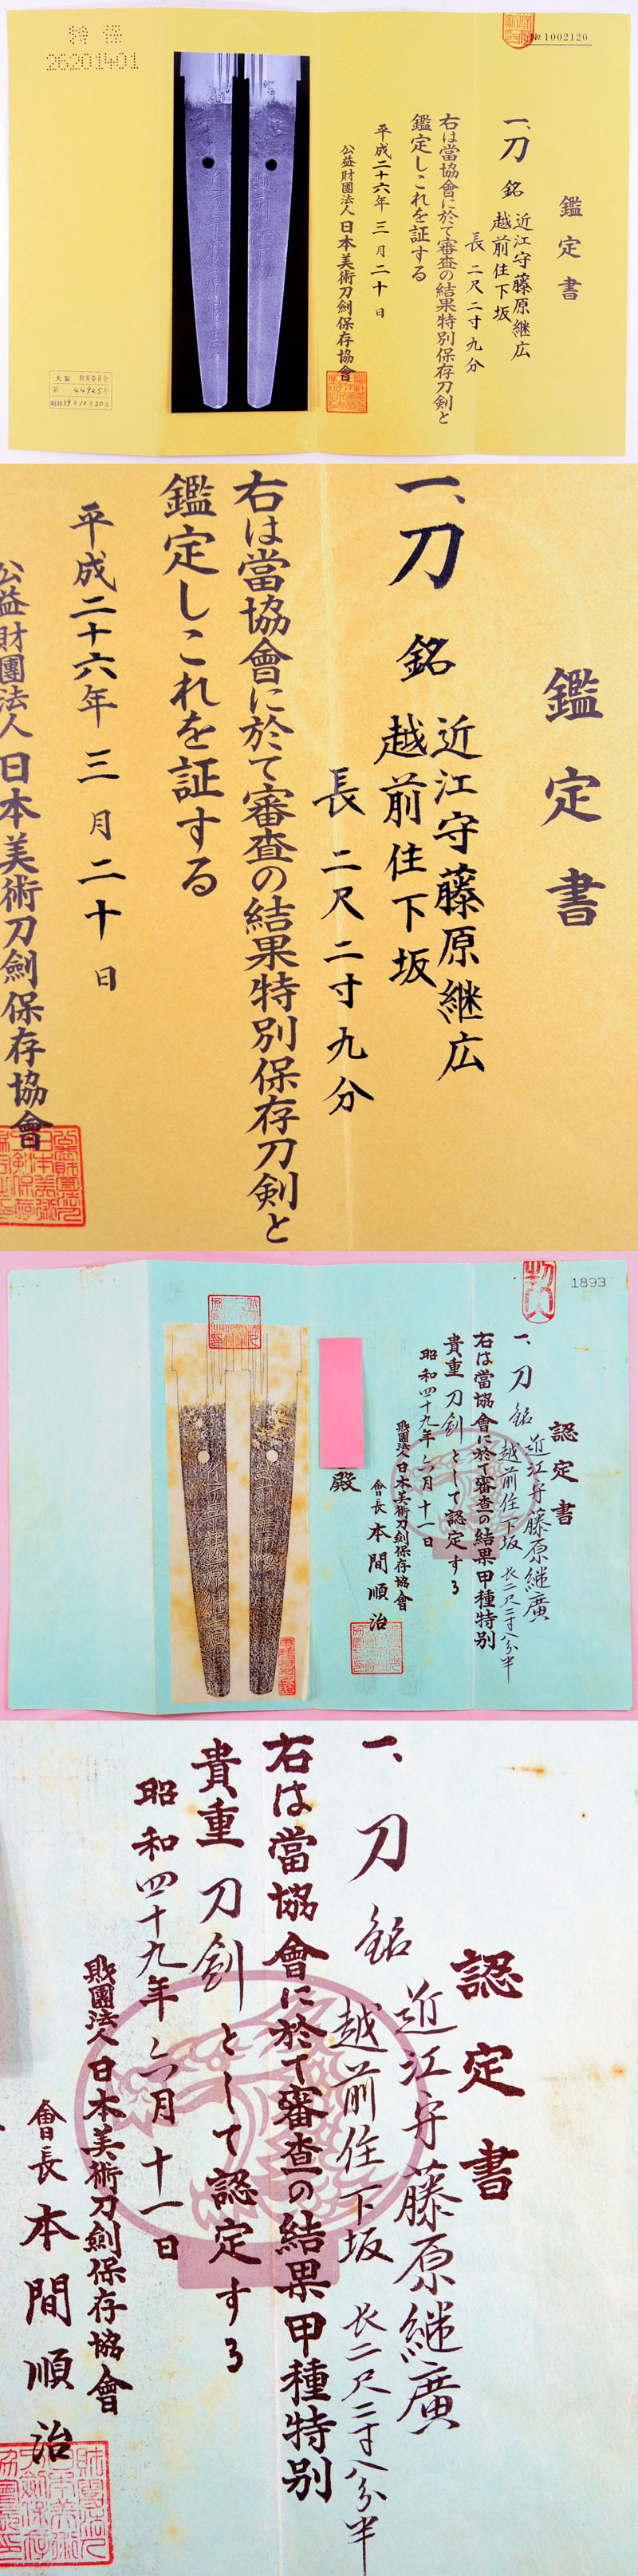 特保
26201401
№ 1002120
鑑定書
一、刀 銘 近江守藤原継広
越前住下坂
長 二尺二寸九分
右は當協會に於て審査の結果特別保存刀剣と
鑑定しこれを証する
平成二十六年 三月 二十日
公益財團法人 日本美術刀劍保存協會
大阪 教育委員会
第 44945号
昭和39年10月20日
鑑定書
一、刀 銘 近江守藤原継広
越前住下坂
長 二尺二寸九分
右は當協會に於て審査の結果特別保存刀剣と
鑑定しこれを証する
平成二十六年 三月 二十日
公益財團法人 日本美術刀劍保存協會
1893
認定書
一、刀 銘 近江守藤原継廣
越前住下坂 長二尺二寸八分半
右は當協會に於て審査の結果甲種特別
貴重 刀剣 として認定する
昭和四十九年六月十一日
財團法人 日本美術刀劍保存協會
會長 本間順治
殿
認定書
一、刀 銘 近江守藤原継廣
越前住下坂 長二尺二寸八分半
右は當協會に於て審査の結果甲種特別
貴重 刀剣 として認定する
昭和四十九年六月十一日
財團法人 日本美術刀劍保存協會
會長 本間順治